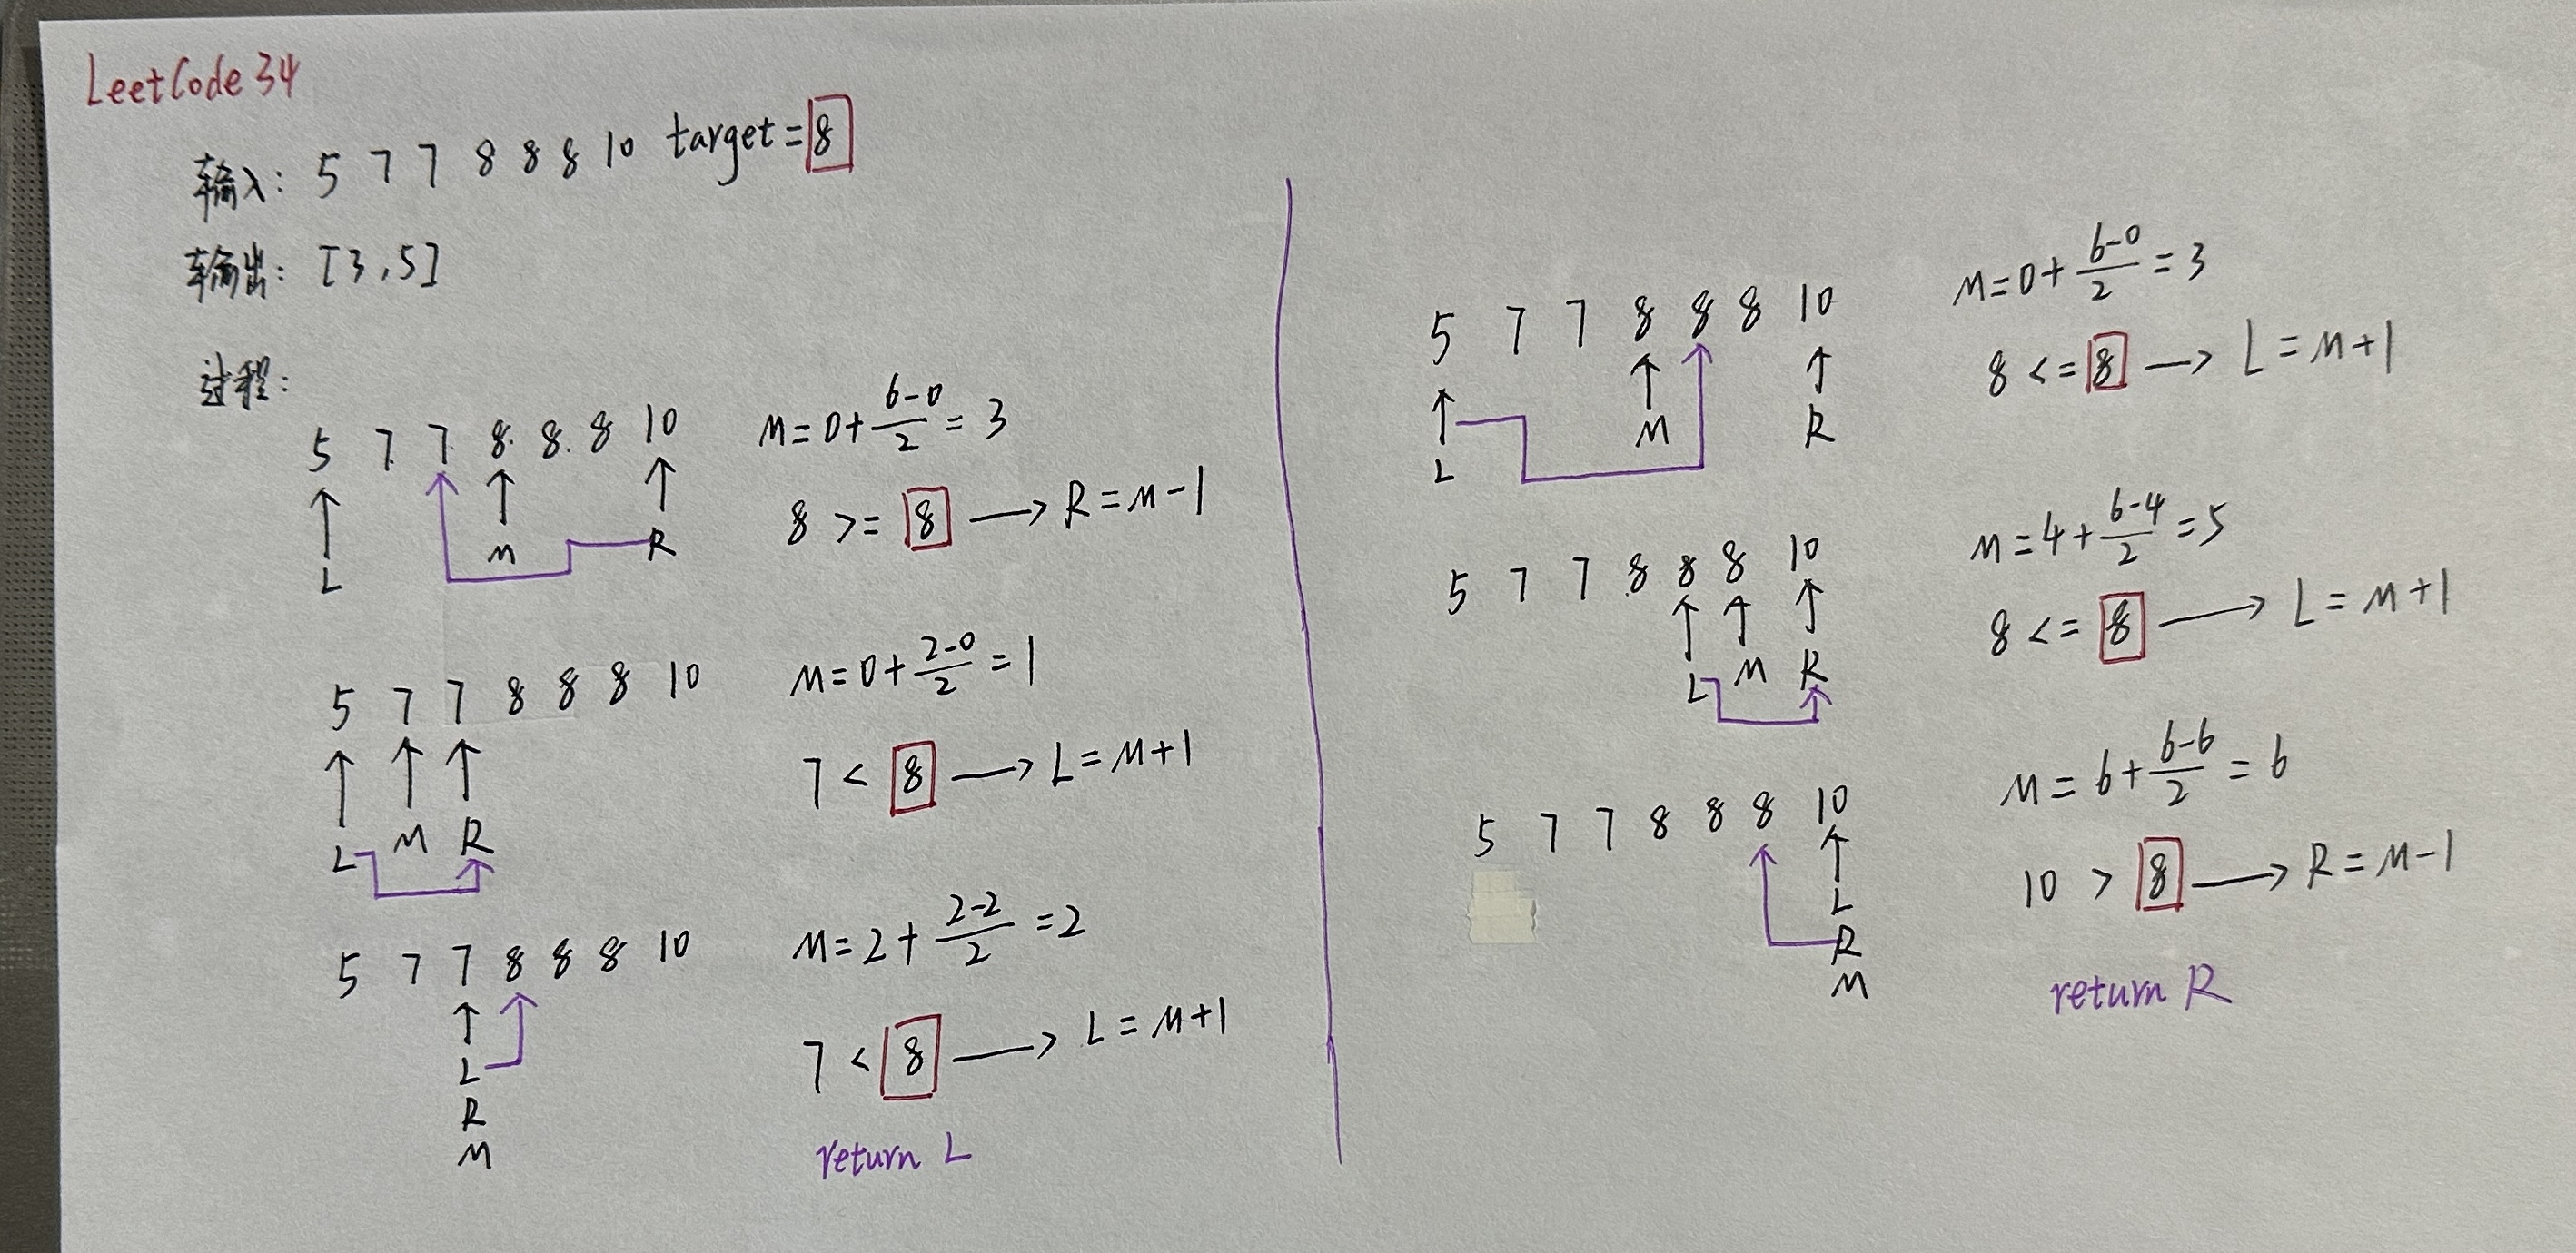 LeetCode 34
输入: 5 7 7 8 8 8 10 target=8
输出: [3,5]
过程:
5 7 7 8 8 8 10
L M R
M=0+(6-0)/2=3
8 >= 8 → R=M-1
5 7 7 8 8 8 10
L M R
M=0+(2-0)/2=1
7 < 8 → L=M+1
5 7 7 8 8 8 10
L
R
M
M=2+(2-2)/2=2
7 < 8 → L=M+1
return L
5 7 7 8 8 8 10
L M R
M=0+(6-0)/2=3
8 <= 8 → L=M+1
5 7 7 8 8 8 10
L M R
M=4+(6-4)/2=5
8 <= 8 → L=M+1
5 7 7 8 8 8 10
L
R
M
M=6+(6-6)/2=6
10 > 8 → R=M-1
return R